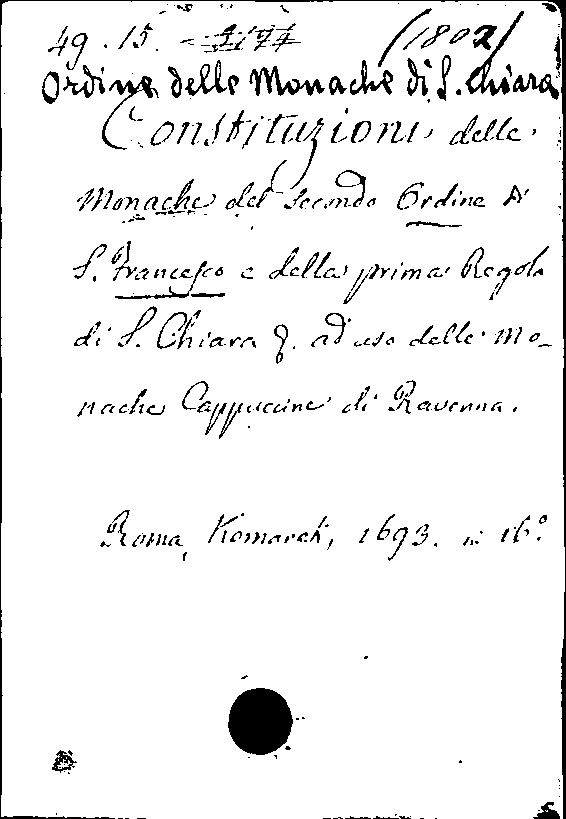 49.15. (1802)
Ordine delle Monache di S. Chiara
Constituzioni delle
Monache del secondo Ordine di
S. Francesco e della prima Regola
di S. Chiara &. ad uso delle Mo-
nache Cappuccine di Ravenna.
Roma, Komarek, 1693. in 16.°